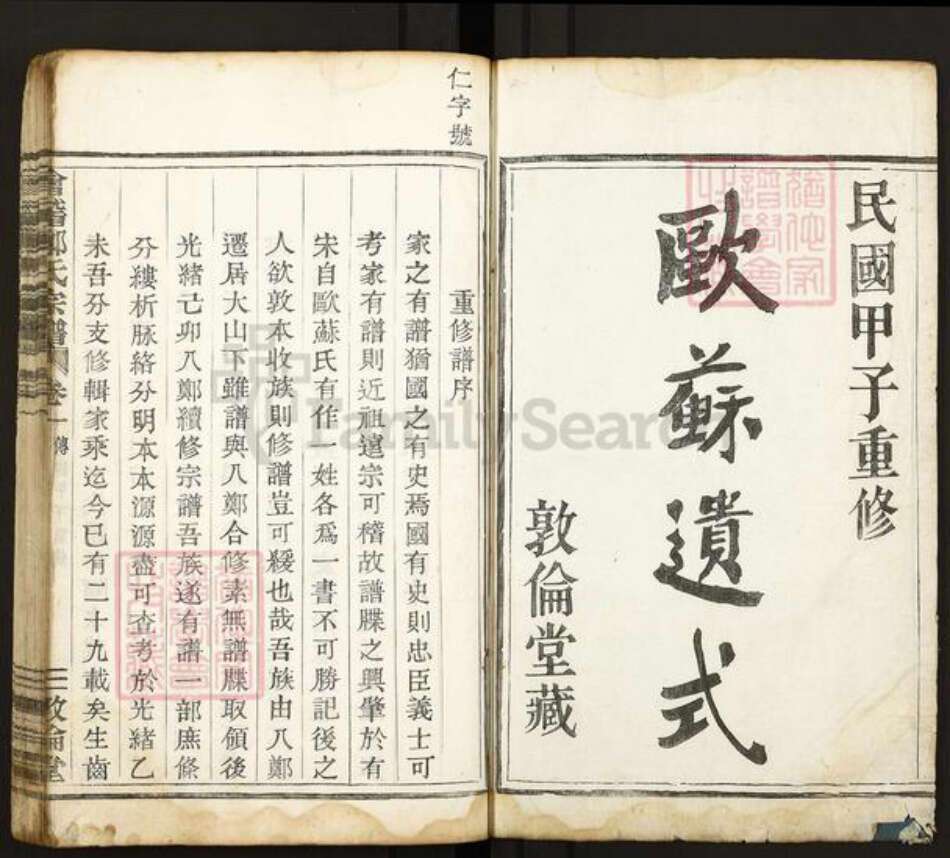 民國甲子重修
歐蘇遺式
敦倫堂藏
仁字號
重修譜序
家之有譜猶國之有史焉國有史則忠臣義士可
考家有譜則近祖遠宗可稽故譜牒之興肇於有
宋自歐蘇氏有作一姓各爲一書不可勝記後之
人欲敦本收族則修譜豈可緩也哉吾族由八鄭
遷居大山下雖譜與八鄭合修素無譜牒取領後
光緒己卯八鄭續修宗譜吾族遂有譜一部庶條
分縷析脉絡分明本本源源盡可查考於光緒乙
未吾分支修輯家乘迄今已有二十九載矣生齒
會稽郭氏宗譜 卷一 傳
敦倫堂
FamilySearch